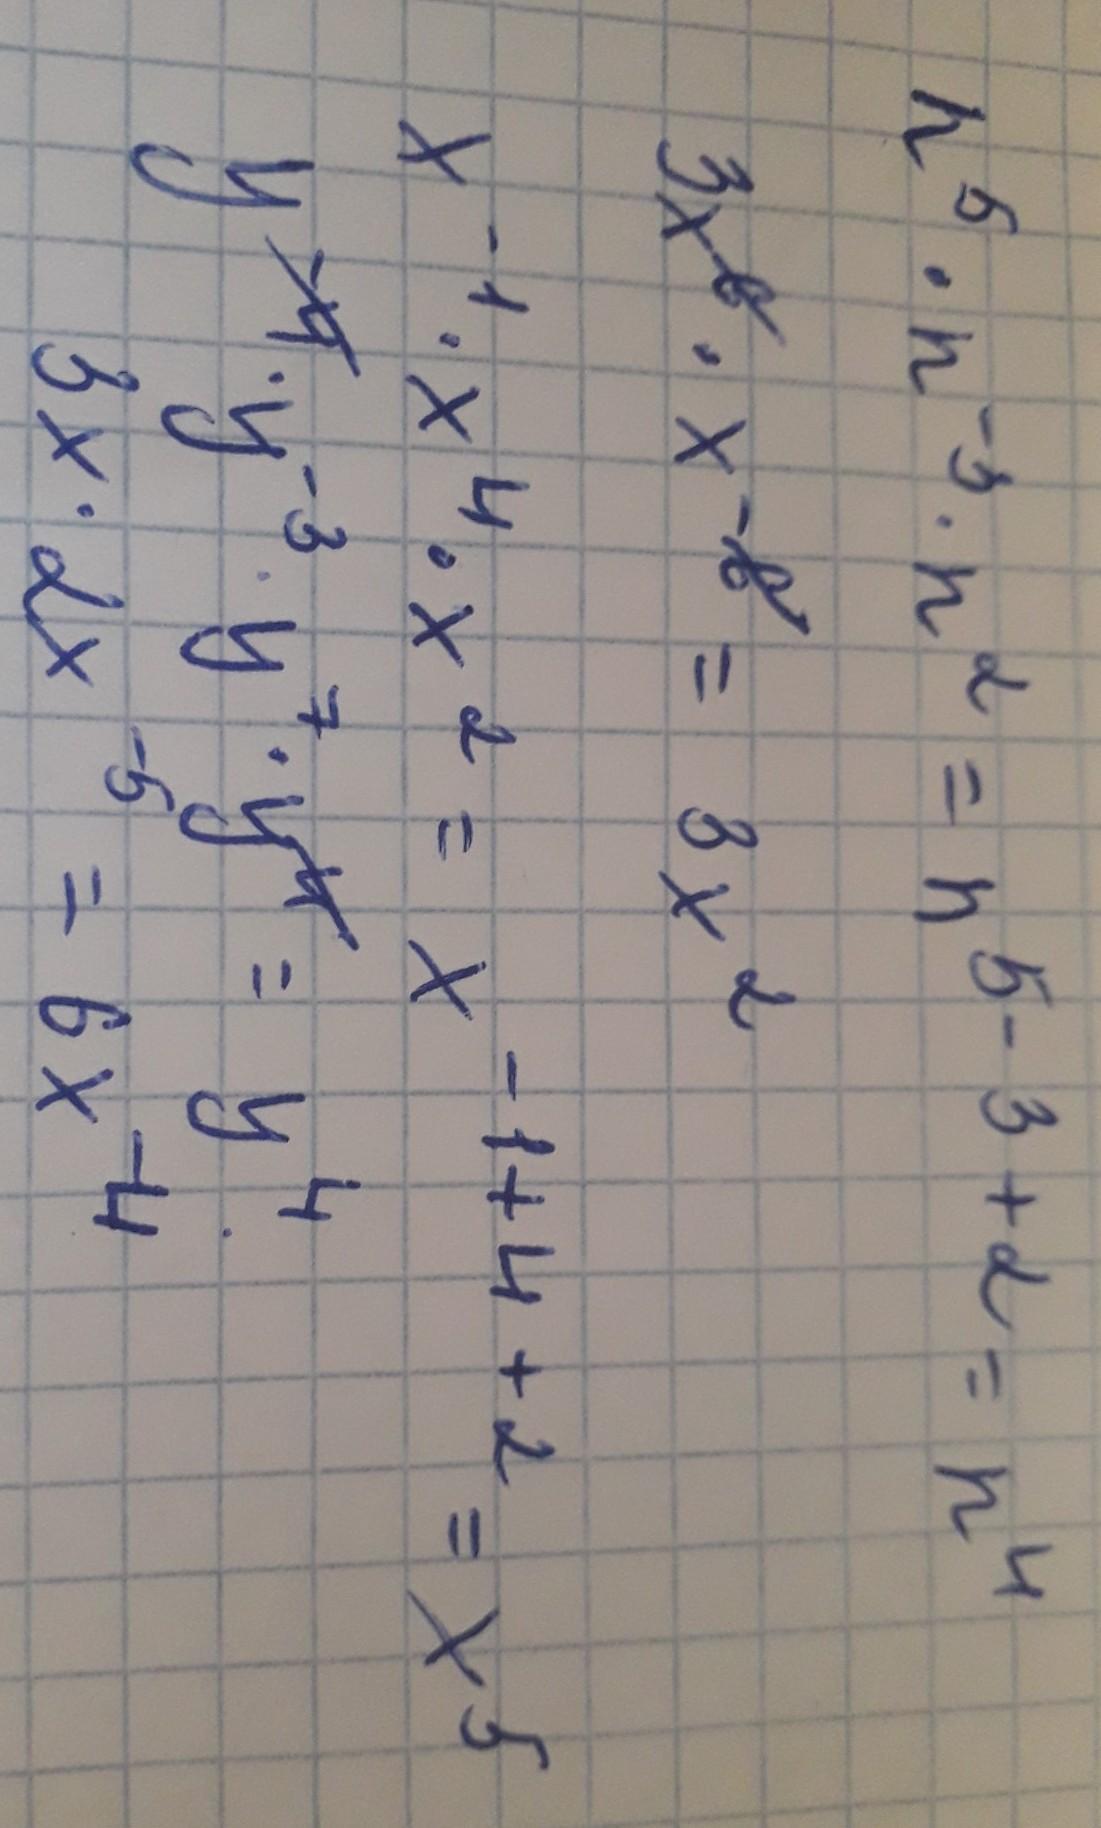 n⁵ · n⁻³ · n² = n⁵⁻³⁺² = n⁴
3x⁶ · x⁻⁶ = 3x²
x⁻¹ · x⁴ · x² = x⁻¹⁺⁴⁺² = x⁵
y⁻⁴ · y⁻³ · y⁷ · y⁴ = y⁴
3x · 2x⁻⁵ = 6x⁻⁴